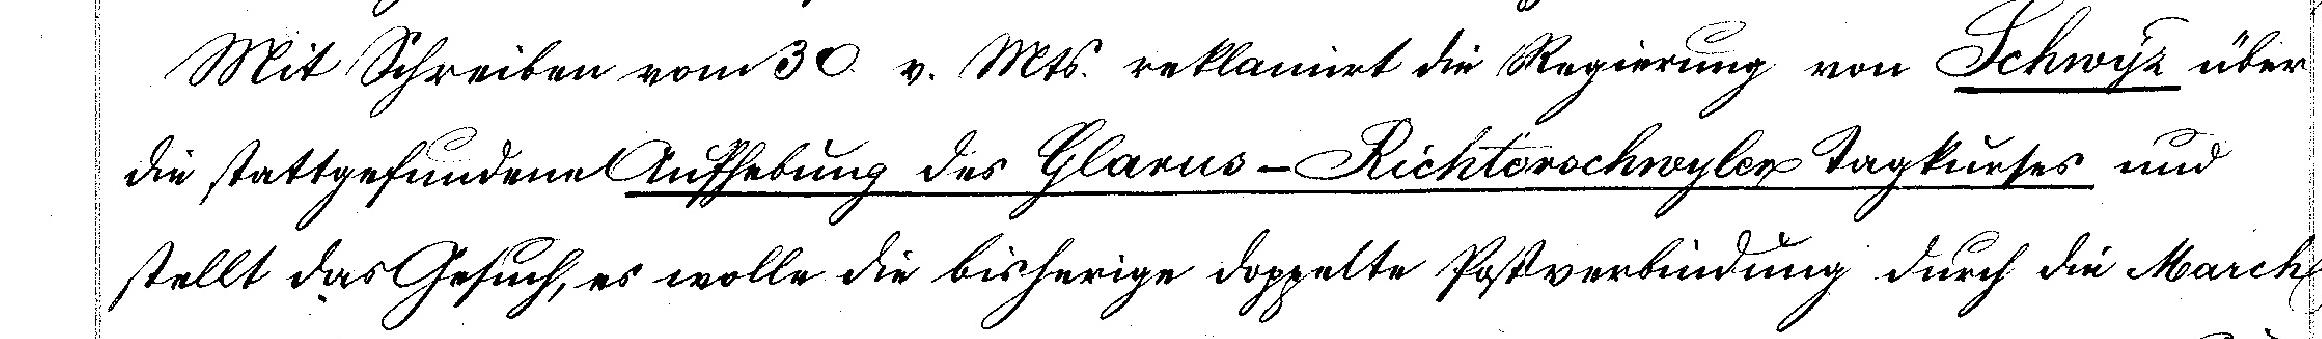 Mit Schreiben vom 30 v. Mts. reklamirt die Regierung von Schwyz über
die stattgefundene Aufhebung des Glarus-Richterschwyler Tagkurses und
stellt das Gesuch, es wolle die bisherige doppelte Postverbindung durch die March